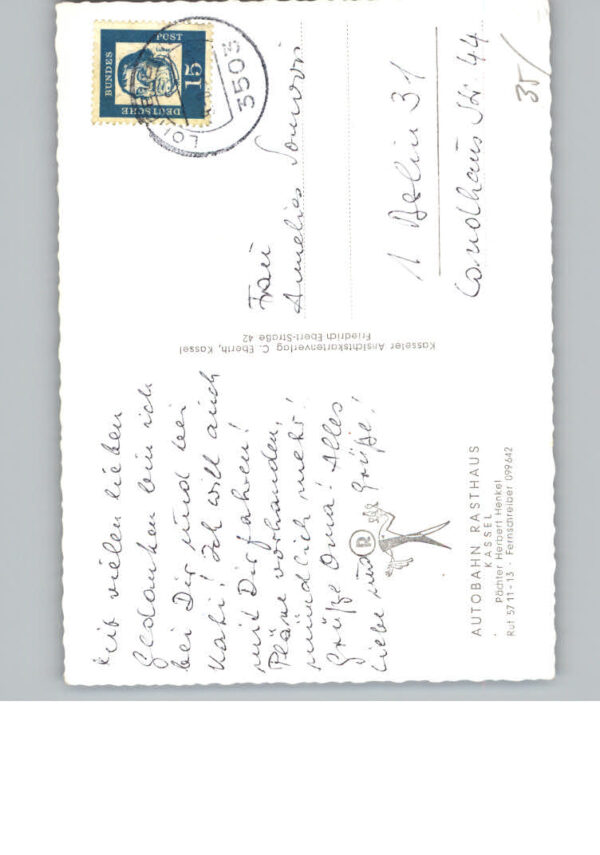 Mit vielen lieben
Gedanken bin ich
bei Dir und bei
Kati! Ich will auch
mit Dir fahren!
Pläne vorhanden,
mündlich mehr!
Grüße Oma! Alles
Liebe und Grüße!
R
AUTOBAHN RASTHAUS
KASSEL
Pächter Herbert Henkel
Ruf 57 11-13 · Fernschreiber 099642
Kasseler Ansichtskartenverlag C. Eberth, Kassel
Friedrich-Ebert-Straße 42
DEUTSCHE BUNDESPOST
15
3503
Frau
Annelies
1 Berlin 31
Landhaus Str. 44
35/